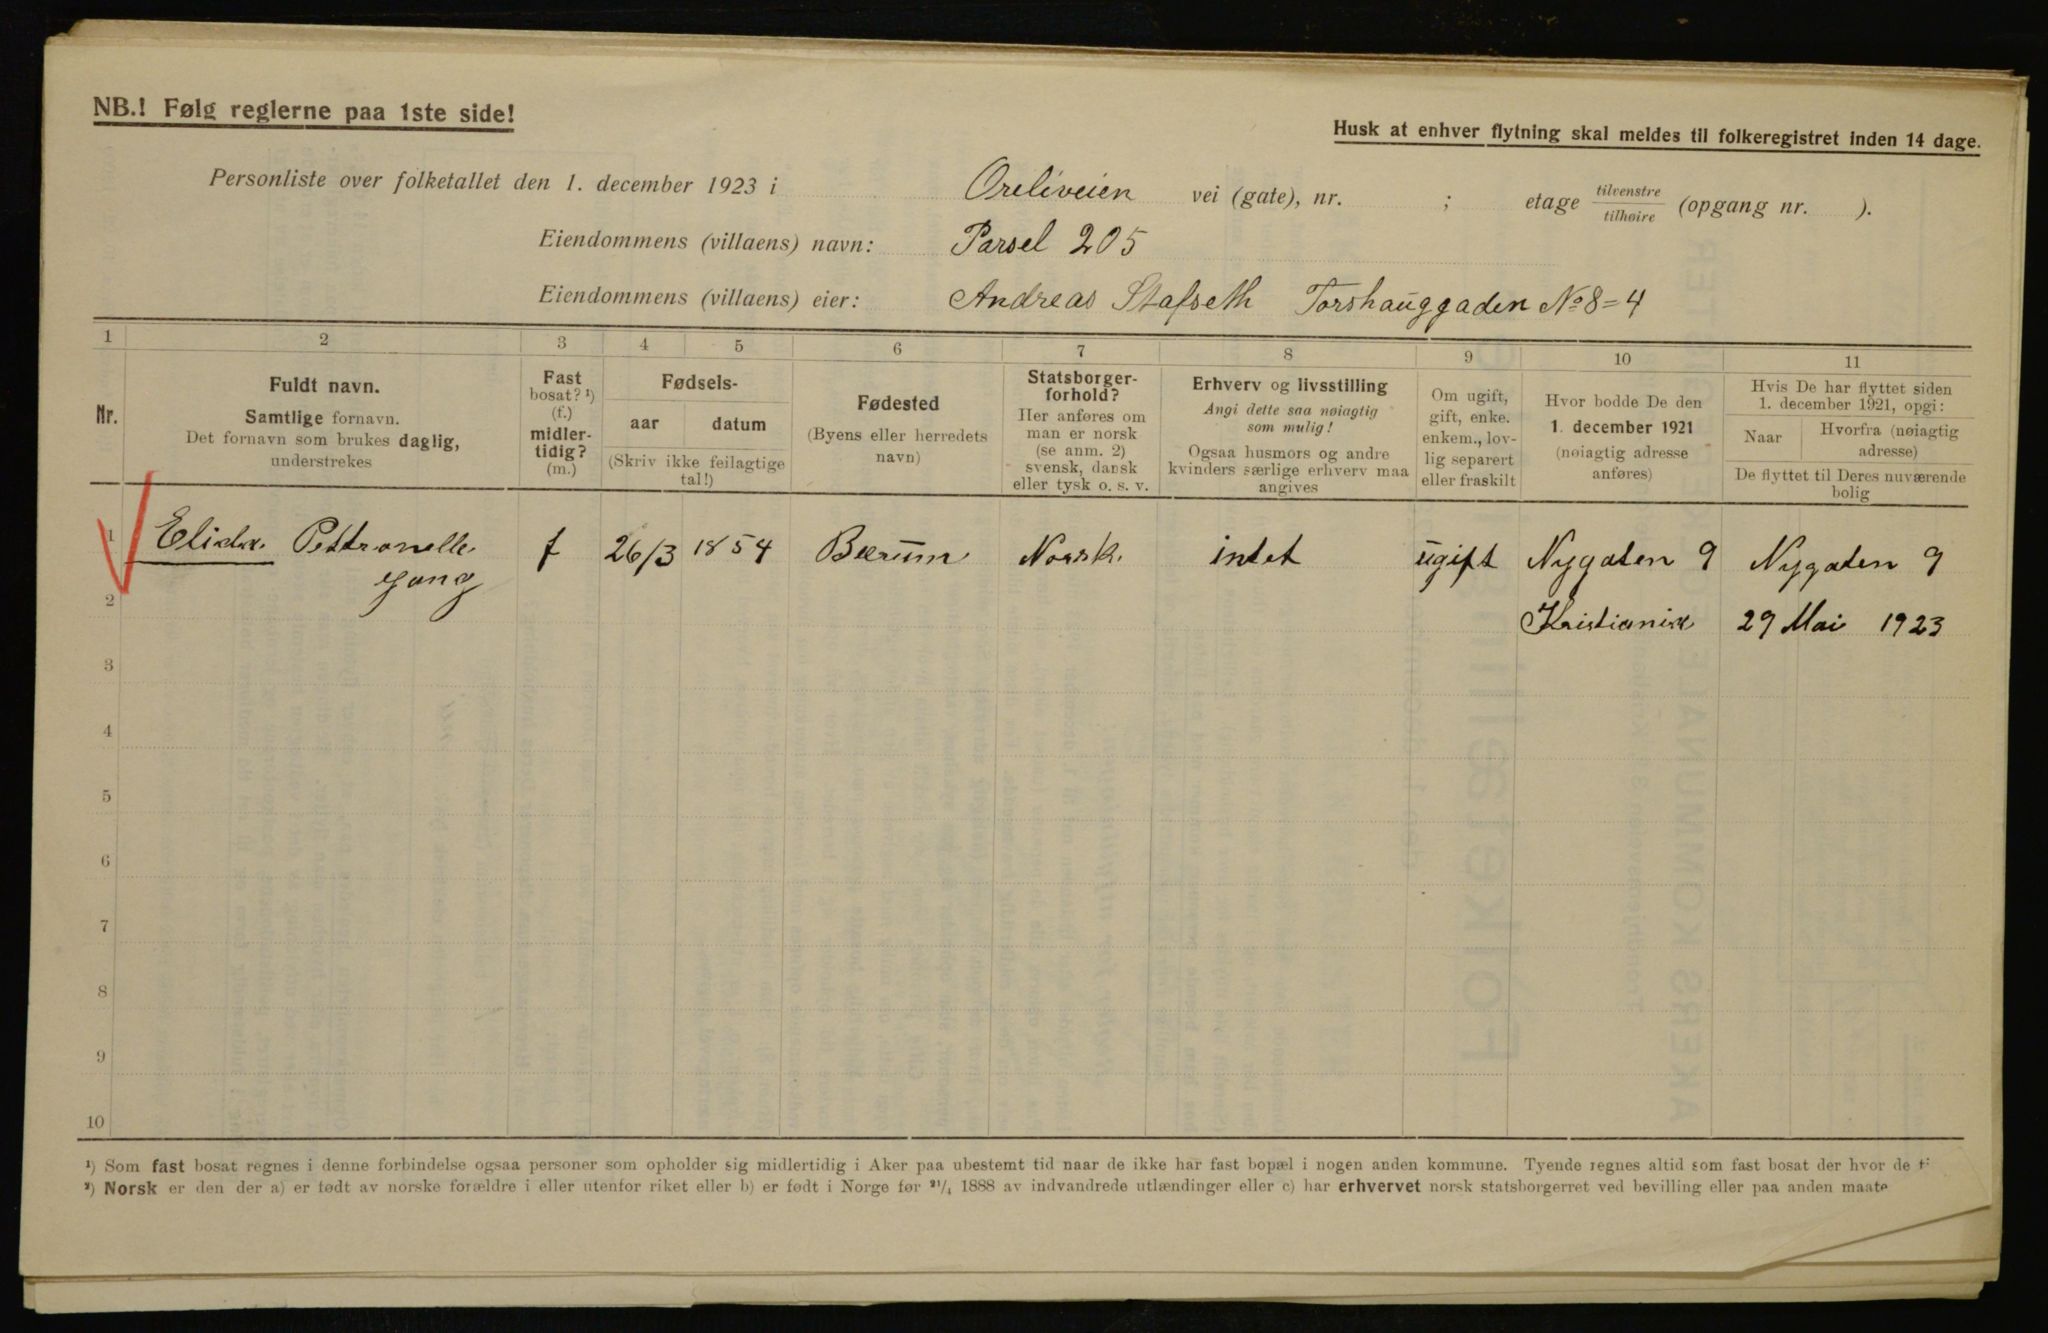 NB.! Følg reglerne paa 1ste side!
Husk at enhver flytning skal meldes til folkeregistret inden 14 dage.
Personliste over folketallet den 1. december 1923 i Oreliveien vei (gate), nr. ; etage tilvenstre / tilhøire (opgang nr. ).
Eiendommens (villaens) navn: Parsel 205
Eiendommens (villaens) eier: Andreas Stafseth Torshauggaden No 8=4
1 2 3 4 5 6 7 8 9 10 11
Nr.
Fuldt navn.
Samtlige fornavn.
Det fornavn som brukes daglig,
understrekes
Fast
bosat? ¹)
(f.)
midler-
tidig?
(m.)
Fødsels-
aar datum
(Skriv ikke feilagtige
tal!)
Fødested
(Byens eller herredets
navn)
Statsborger-
forhold?
Her anføres om
man er norsk
(se anm. 2)
svensk, dansk
eller tysk o. s. v.
Erhverv og livsstilling
Angi dette saa nøiagtig
som mulig!
Ogsaa husmors og andre
kvinders særlige erhverv maa
angives
Om ugift,
gift, enke.
enkem., lov-
lig separert
eller fraskilt
Hvor bodde De den
1. december 1921
(nøiagtig adresse
anføres)
Hvis De har flyttet siden
1. december 1921, opgi:
Naar
Hvorfra (nøiagtig
adresse)
De flyttet til Deres nuværende
bolig
1 Elida Pettronelle f 26/3 1854 Bærum Norsk. intet ugift Nygaten 9 Nygaten 9
gang
2 Kristiania 29 Mai 1923
3
4
5
6
7
8
9
10
¹) Som fast bosat regnes i denne forbindelse ogsaa personer som opholder sig midlertidig i Aker paa ubestemt tid naar de ikke har fast bopæl i nogen anden kommune. Tyende regnes altid som fast bosat der hvor de
²) Norsk er den der a) er født av norske forældre i eller utenfor riket eller b) er født i Norge før ²¹/₄ 1888 av indvandrede utlændinger eller c) har erhvervet norsk statsborgerret ved bevilling eller paa anden maate